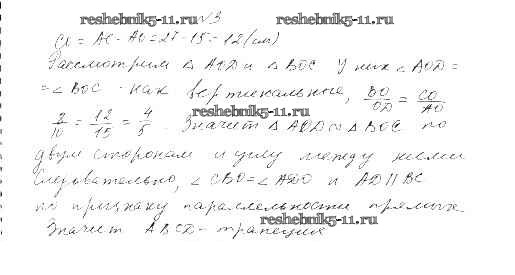 reshebnik5-11.ru №3 reshebnik5-11.ru
CO = AC - AO = 27 - 15 = 12 (см)
Рассмотрим △ AOD и △ BOC У них ∠ AOD =
= ∠ BOC - как вертикальные, BO/OD = CO/AO
8/10 = 12/15 = 4/5. Значит △ AOD ∾ △ BOC по
двум сторонам и углу между ними
Следовательно, ∠ CBO = ∠ ADO и AD || BC
по признаку параллельности прямых
reshebnik5-11.ru
Значит ABCD - трапеция